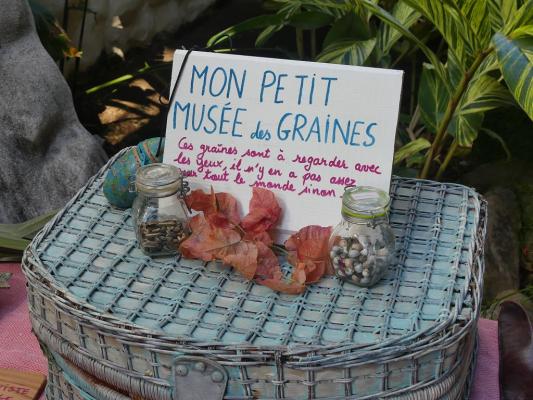 MON PETIT
MUSÉE des GRAINES
Ces graines sont à regarder avec
les yeux, il n'y en a pas assez
pour tout le monde sinon
ISTE